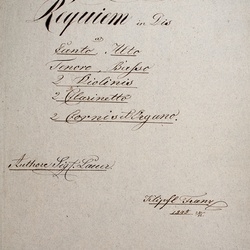 Requiem in Dis
à
Canto Alto
Tenore Basso
2 Violinis
2 Clarinetto
2 Cornis & Organo.
Authore Sigl: Lauer.
Franz